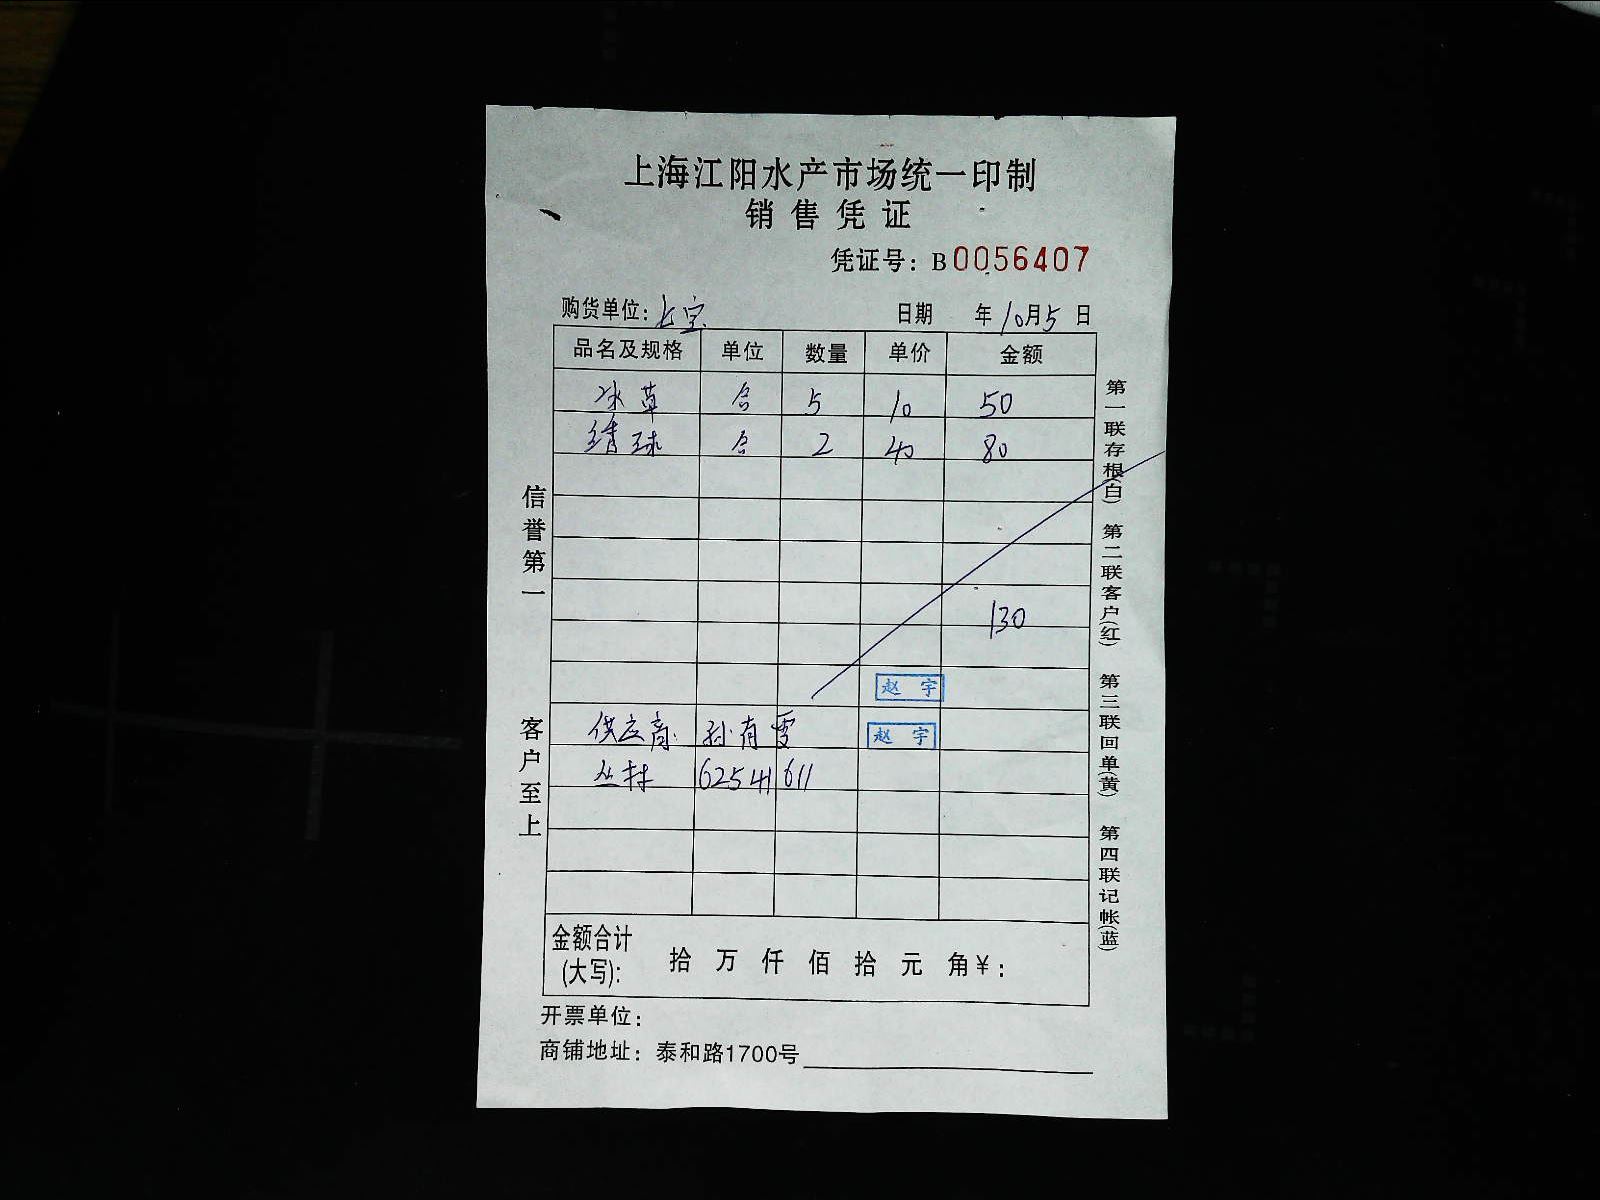 上海江阳水产市场统一印制
销售凭证
凭证号：B0056407
购货单位：七宝 日期 年10月5日
品名及规格 单位 数量 单价 金额
冰草 合 5 10 50
球 合 2 40 80
130
赵宇
供应商 孙有雪 赵宇
丛林 62541611
金额合计 拾万仟佰拾元角¥：
(大写)：
开票单位：
商铺地址：泰和路1700号
信誉第一
客户至上
第一联存根(白) 第二联客户(红) 第三联回单(黄) 第四联记帐(蓝)